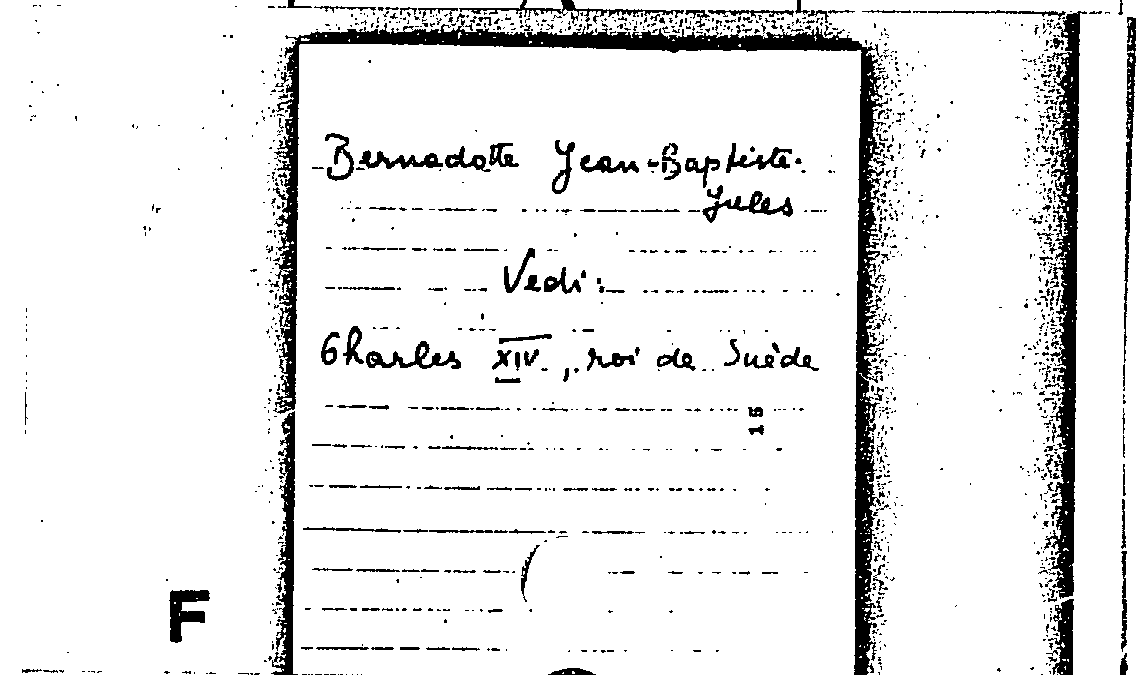 Bernadotte Jean-Baptiste-
Jules
Vedi:
Charles XIV, roi de Suède
15
F